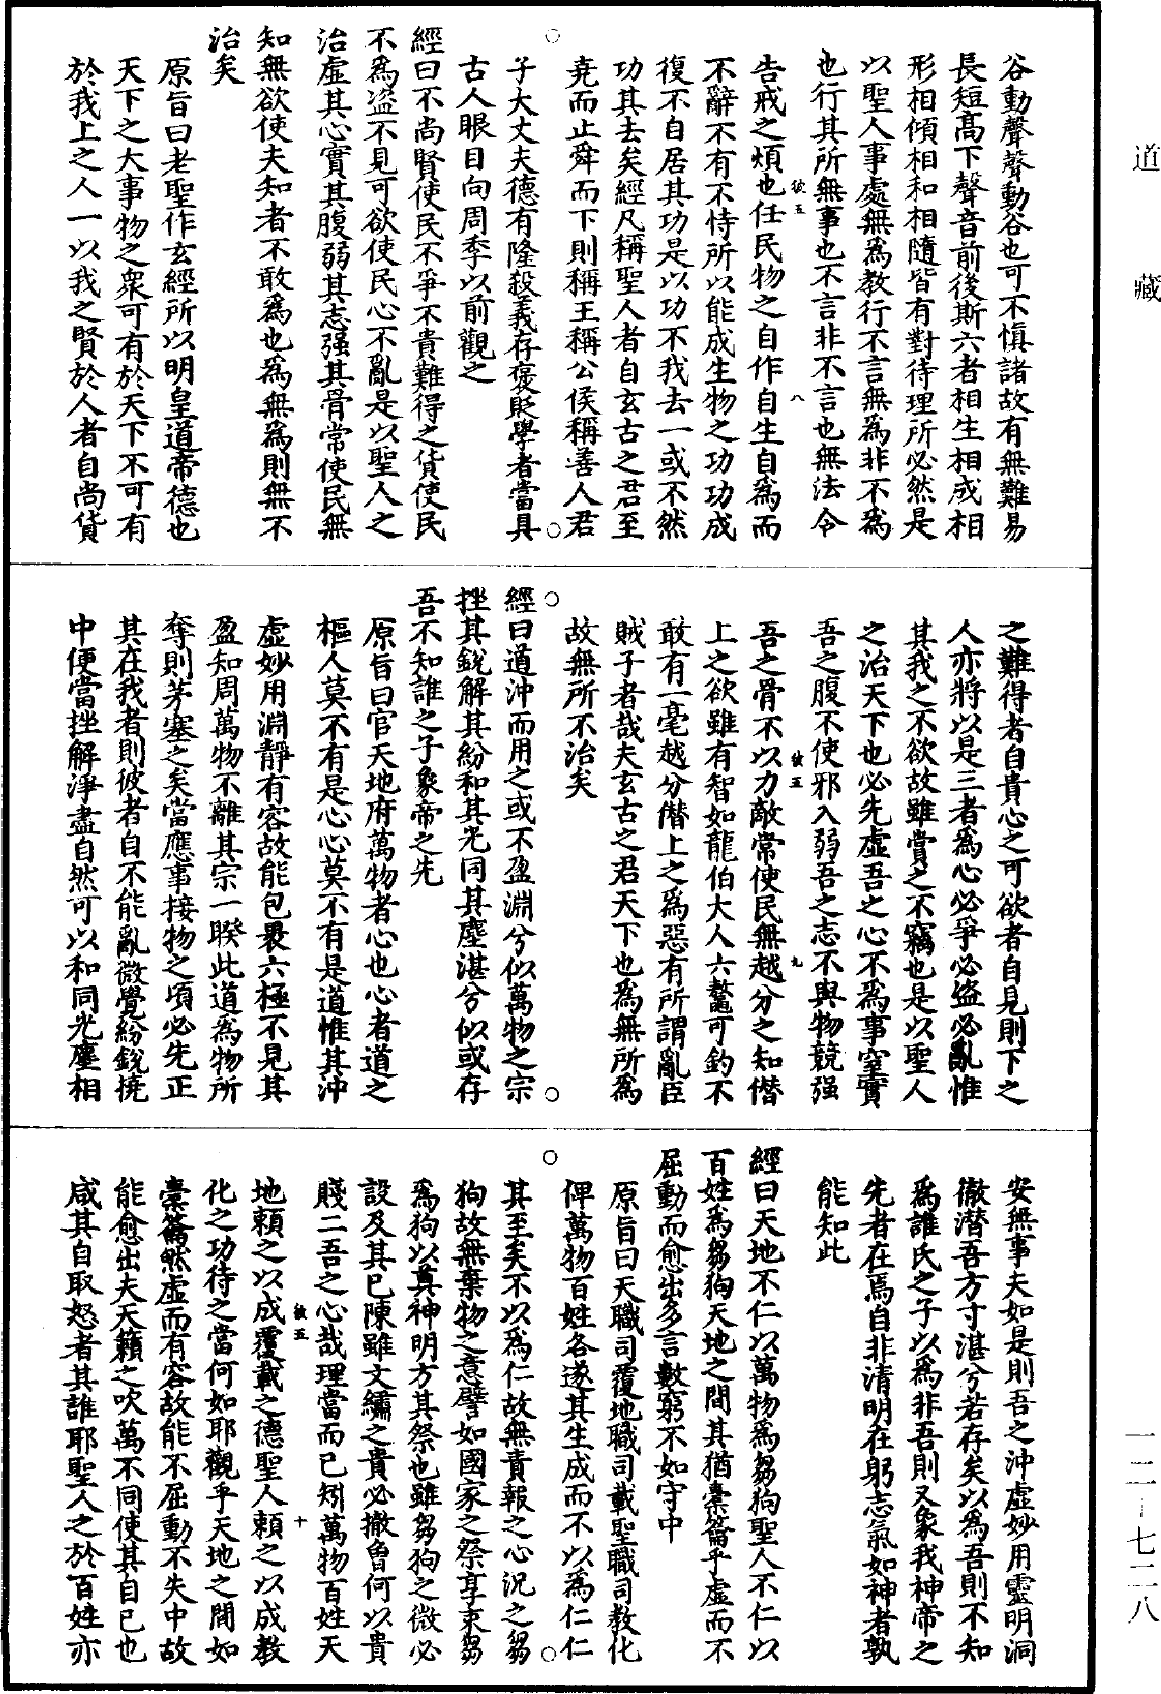 道藏
谷動聲聲動谷也可不慎諸故有無難易
長短高下聲音前後斯六者相生相成相
形相傾相和相隨皆有對待理所必然是
以聖人事處無為教行不言無為非不為
也行其所無事也不言非不言也無法令
告戒之煩也任民物之自作自生自為而
彼五 八
不辭不有不恃所以能成生物之功功成
復不自居其功是以功不我去一或不然
功其去矣經凡稱聖人者自玄古之君至
堯而止舜而下則稱王稱公侯稱善人君
子大丈夫德有隆殺義存褒貶學者當具
古人眼目向周季以前觀之
經曰不尚賢使民不爭不貴難得之貨使民
不為盜不見可欲使民心不亂是以聖人之
治虛其心實其腹弱其志强其骨常使民無
知無欲使夫知者不敢為也為無為則無不
治矣
原旨曰老聖作玄經所以明皇道帝德也
天下之大事物之衆可有於天下不可有
於我上之人一以我之賢於人者自尚貨
之難得者自貴心之可欲者自見則下之
人亦將以是三者為心必爭必盜必亂惟
其我之不欲故雖賞之不竊也是以聖人
之治天下也必先虛吾之心不為事窒實
吾之腹不使邪入弱吾之志不與物競强
吾之骨不以力敵常使民無越分之知僭
彼五 九
上之欲雖有智如龍伯大人六鼇可釣不
敢有一毫越分僭上之為惡有所謂亂臣
賊子者哉夫玄古之君天下也為無所為
故無所不治矣
經曰道沖而用之或不盈淵兮似萬物之宗
挫其銳解其紛和其光同其塵湛兮似或存
吾不知誰之子象帝之先
原旨曰官天地府萬物者心也心者道之
樞人莫不有是心心莫不有是道惟其沖
虛妙用淵靜有容故能包裹六極不見其
盈知周萬物不離其宗一睽此道為物所
奪則茅塞之矣當應事接物之頃必先正
其在我者則彼者自不能亂微覺紛銳撓
中便當挫解淨盡自然可以和同光塵相
安無事夫如是則吾之沖虛妙用靈明洞
徹潜吾方寸湛兮若存矣以為吾則不知
為誰氏之子以為非吾則又象我神帝之
先者在焉自非清明在躬志氣如神者孰
能知此
經曰天地不仁以萬物為芻狗聖人不仁以
百姓為芻狗天地之間其猶橐籥乎虛而不
屈動而愈出多言數窮不如守中
原旨曰天職司覆地職司載聖職司教化
俾萬物百姓各遂其生成而不以為仁仁
其至矣不以為仁故無責報之心況之芻
狗故無棄物之意譬如國家之祭享束芻
為狗以奠神明方其祭也雖芻狗之微必
設及其已陳雖文繡之貴必撤曾何以貴
賤二吾之心哉理當而已矧萬物百姓天
彼五 十
地賴之以成覆載之德聖人賴之以成教
化之功待之當何如耶觀乎天地之間如
橐籥然虛而有容故能不屈動不失中故
能愈出夫天籟之吹萬不同使其自已也
咸其自取怒者其誰耶聖人之於百姓亦
一二-七二八